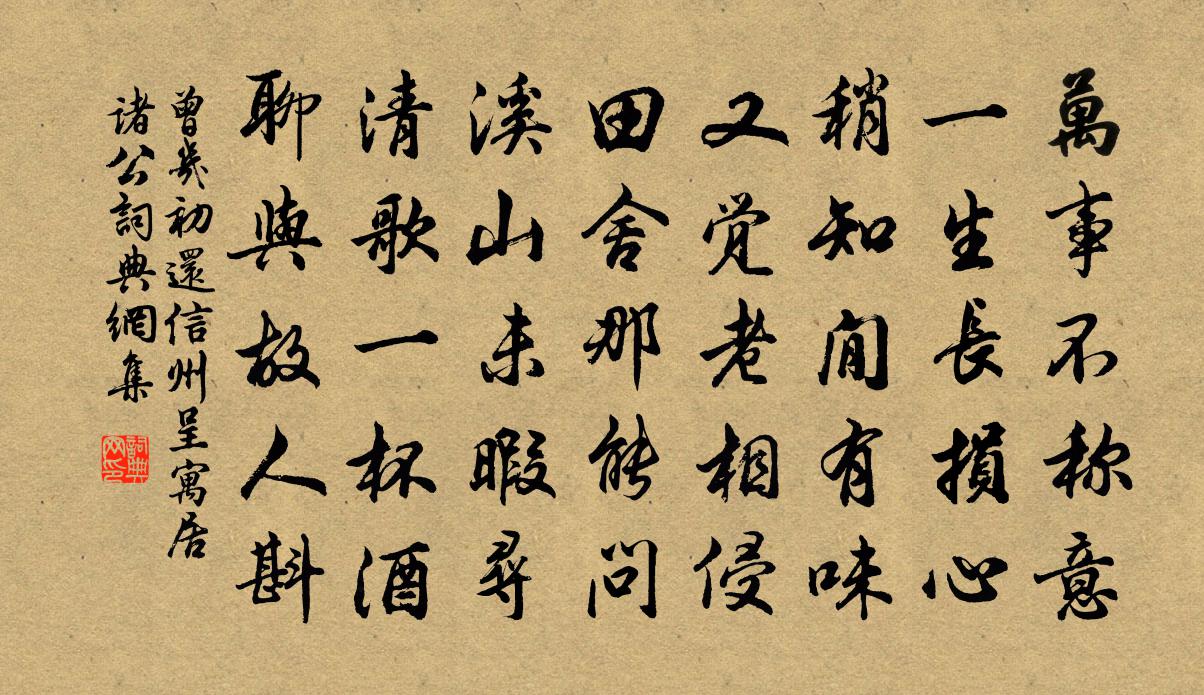 萬事不称意
一生長損心
稍知閒有味
又觉老相侵
田舍那能问
溪山未暇尋
清歌一杯酒
聊與故人斟
曾幾初還信州呈寓居
诸公詞典網集
詞典
网印